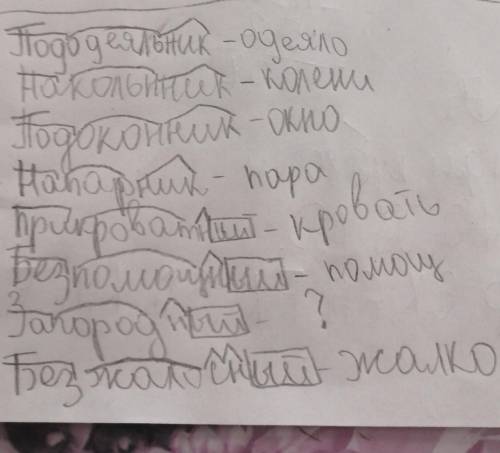 Пододеяльник - одеяло
Накольнник - колени
Подоконник - окно
Напарник - пара
Прикроватный - кровать
Безпомощный - помощ
Загородный - ?
Безжалосный - жалко